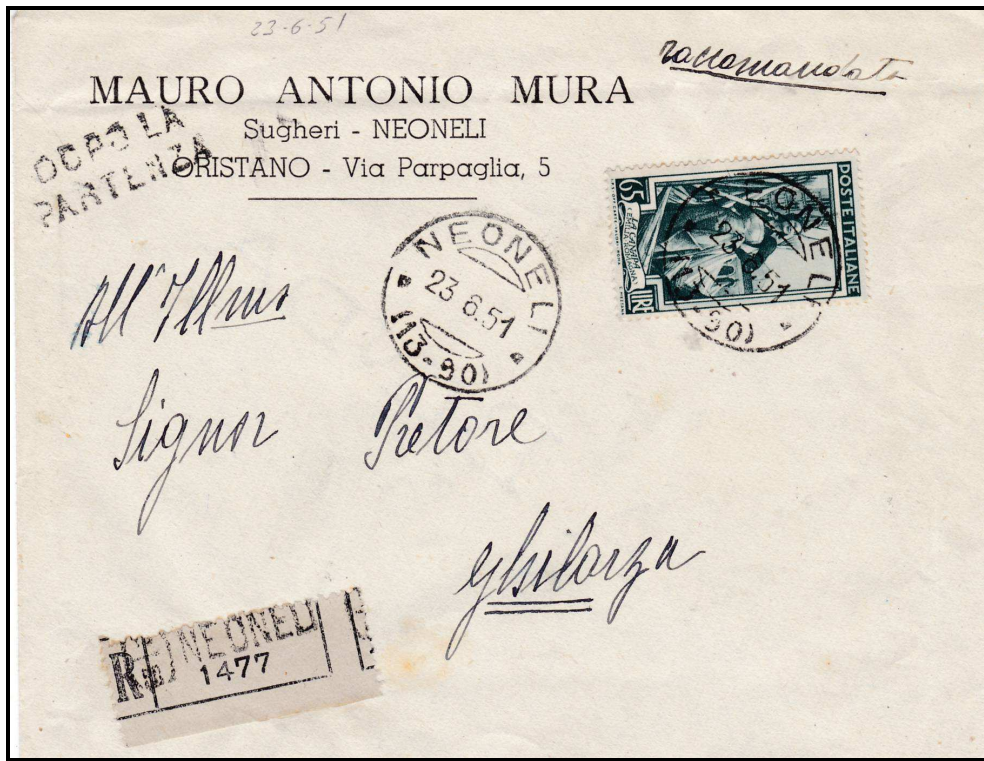 23-6-51
raccomandata
MAURO ANTONIO MURA
Sugheri - NEONELI
ORISTANO - Via Parpaglia, 5
DOPO LA
PARTENZA
NEONELI
23.6.51
(13-90)
POSTE ITALIANE
65
LIRE
NEONELI
23.6.51
(13-90)
All'Illmo
Signor Pretore
Ghilarza
R NEONELI
1477